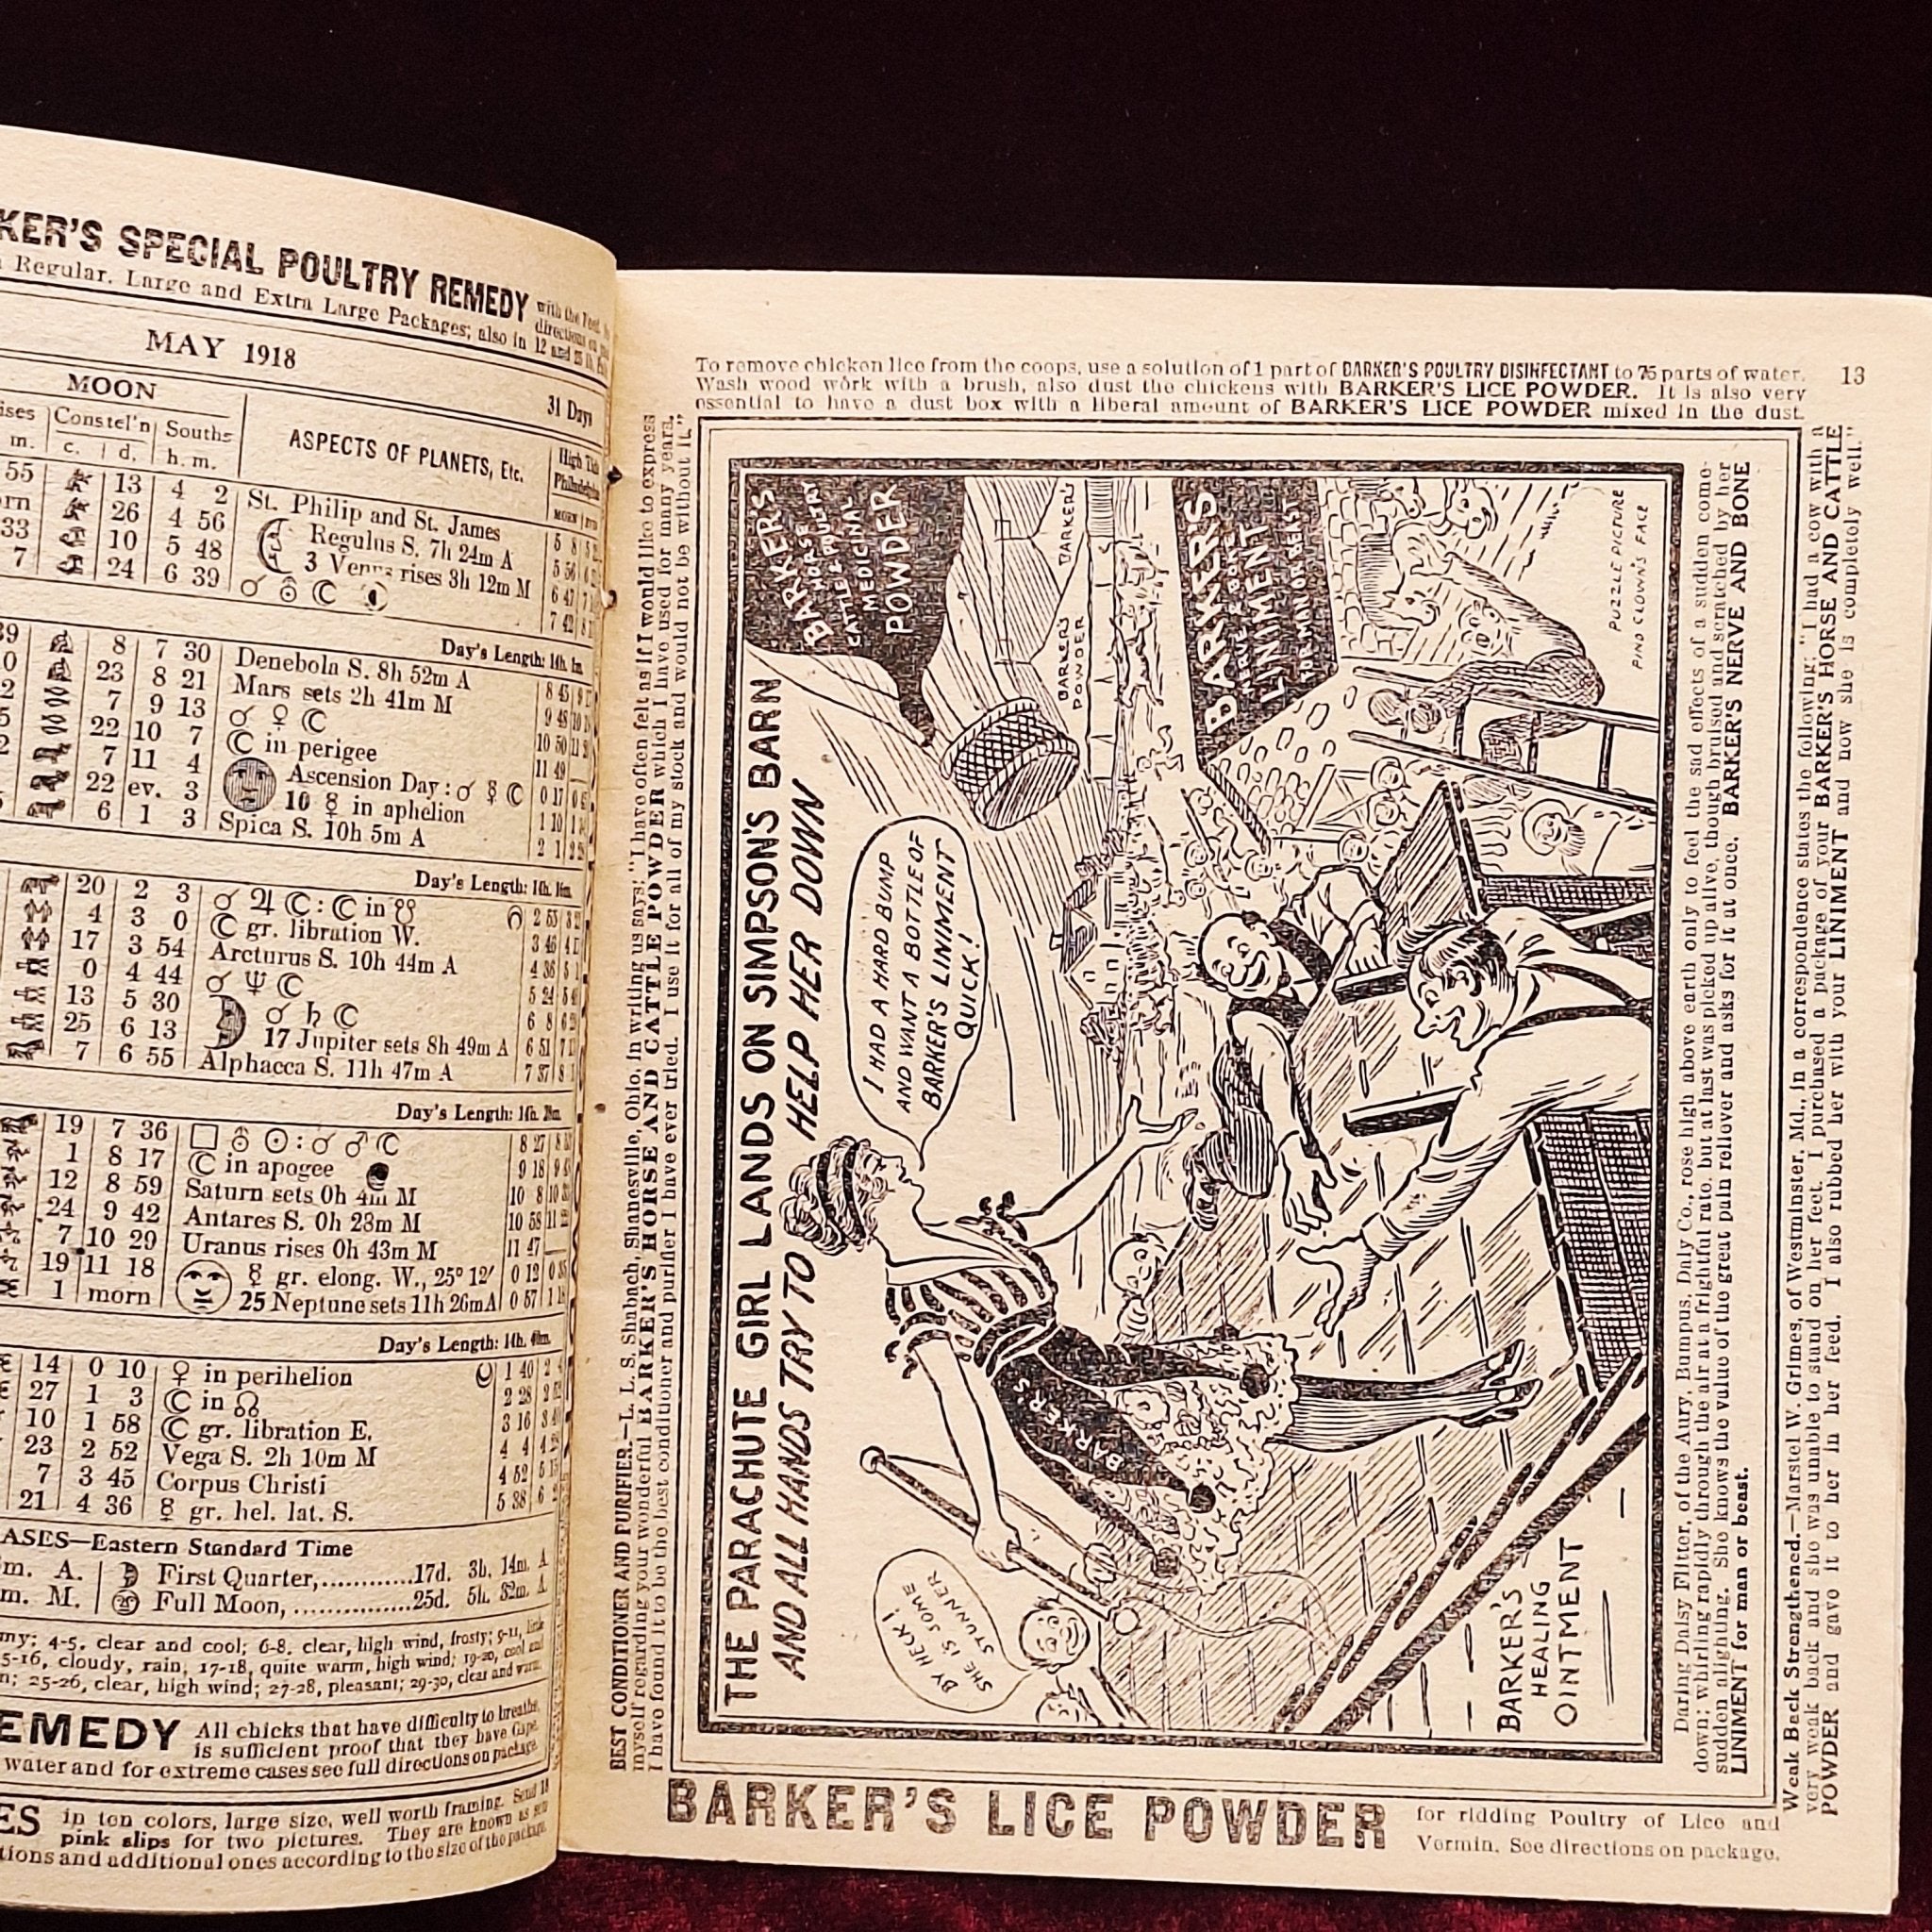 KER'S SPECIAL POULTRY REMEDY with the Feed.
Regular, Large and Extra Large Packages; also in 12 and 25 lb.
MAY 1918
31 Days
MOON
ises Constel'n Souths
m. c. d. h. m.
ASPECTS OF PLANETS, Etc.
High Tide
Philadelphia
MORN
55 13 4 2 St. Philip and St. James 5 8
orn 26 4 56 Regulus S. 7h 24m A 5 56
33 10 5 48 3 Venus rises 3h 12m M 6 47
7 24 6 39 ☌ ♅ ☾ 7 42
Day's Length: 14h. 1m.
39 8 7 30 Denebola S. 8h 52m A 8 45
0 23 8 21 Mars sets 2h 41m M 9 48
2 7 9 13 ☌ ♀ ☾ 10 50
5 22 10 7 ☾ in perigee 11 49
2 7 11 4 Ascension Day: ☌ ☿ ☾ 0 17
22 ev. 3 10 ☿ in aphelion 1 10
5 6 1 3 Spica S. 10h 5m A 2 1
Day's Length: 14h. 16m.
20 2 3 ☌ ♃ ☾: ☾ in ☋ 2 55
4 3 0 ☾ gr. libration W. 3 46
17 3 54 Arcturus S. 10h 44m A 4 36
0 4 44 ☌ ♆ ☾ 5 24
13 5 30 ☌ ♄ ☾ 6 8
25 6 13 17 Jupiter sets 8h 49m A 6 51
7 6 55 Alphacca S. 11h 47m A 7 37
Day's Length: 14h. 28m.
19 7 36 □ ♅ ☉: ☌ ♂ ☾ 8 27
1 8 17 ☾ in apogee 9 18
12 8 59 Saturn sets 0h 4m M 10 8
24 9 42 Antares S. 0h 23m M 10 58
7 10 29 Uranus rises 0h 43m M 11 47
19 11 18 ☿ gr. elong. W., 25° 12′ 0 12
1 morn 25 Neptune sets 11h 26m A 0 57
Day's Length: 14h. 40m.
14 0 10 ♀ in perihelion 1 40
27 1 3 ☾ in ☊ 2 28
10 1 58 ☾ gr. libration E. 3 16
23 2 52 Vega S. 2h 10m M 4 4
7 3 45 Corpus Christi 4 52
21 4 36 ☿ gr. hel. lat. S. 5 38
ASES—Eastern Standard Time
m. A. First Quarter, 17d. 3h. 14m. A
m. M. Full Moon, 25d. 5h. 32m. A
my; 4-5, clear and cool; 6-8, clear, high wind, frosty; 9-11,
5-16, cloudy, rain; 17-18, quite warm, high wind; 19-20, cool and
n; 25-26, clear, high wind; 27-28, pleasant; 29-30, clear and warm.
EMEDY All chicks that have difficulty to breathe,
is sufficient proof that they have Gape.
water and for extreme cases see full directions on package.
ES in ten colors, large size, well worth framing. Send
pink slips for two pictures. They are known as
tions and additional ones according to the size of the package.
To remove chicken lice from the coops, use a solution of 1 part of BARKER'S POULTRY DISINFECTANT to 75 parts of water.
Wash wood work with a brush, also dust the chickens with BARKER'S LICE POWDER. It is also very
essential to have a dust box with a liberal amount of BARKER'S LICE POWDER mixed in the dust.
13
BEST CONDITIONER AND PURIFIER.—L. S. Shabach, Shanesville, Ohio, in writing us says: "I have often felt as if I would like to express
myself regarding your wonderful BARKER'S HORSE AND CATTLE POWDER which I have used for many years.
I have found it to be the best conditioner and purifier I have ever tried. I use it for all of my stock and would not be without it."
THE PARACHUTE GIRL LANDS ON SIMPSON'S BARN
AND ALL HANDS TRY TO HELP HER DOWN
BARKER'S
HORSE
CATTLE & POULTRY
MEDICINAL
POWDER
I HAD A HARD BUMP
AND WANT A BOTTLE OF
BARKER'S LINIMENT
QUICK!
BARKER'S
POWDER
BARKER'S
BARKER'S
NERVE & BONE
LINIMENT
FOR MAN OR BEAST
BARKERS
BY HECK!
SHE IS SOME
STUNNER
PUZZLE PICTURE
FIND CLOWN'S FACE
BARKER'S
HEALING
OINTMENT
Daring Daisy Flitter, of the Aury, Bumpus, Daly Co., rose high above earth only to feel the sad effects of a sudden come-
down; whirling rapidly through the air at a frightful rate, but at last was picked up alive, though bruised and scratched by her
sudden alighting. She knows the value of the great pain reliever and asks for it at once. BARKER'S NERVE AND BONE
LINIMENT for man or beast.
Weak Back Strengthened.—Marstel W. Grimes, of Westminster, Md., in a correspondence states the following: "I had a cow with a
very weak back and she was unable to stand on her feet. I purchased a package of your BARKER'S HORSE AND CATTLE
POWDER and gave it to her in her feed. I also rubbed her with your LINIMENT and now she is completely well."
BARKER'S LICE POWDER for ridding Poultry of Lice and
Vermin. See directions on package.